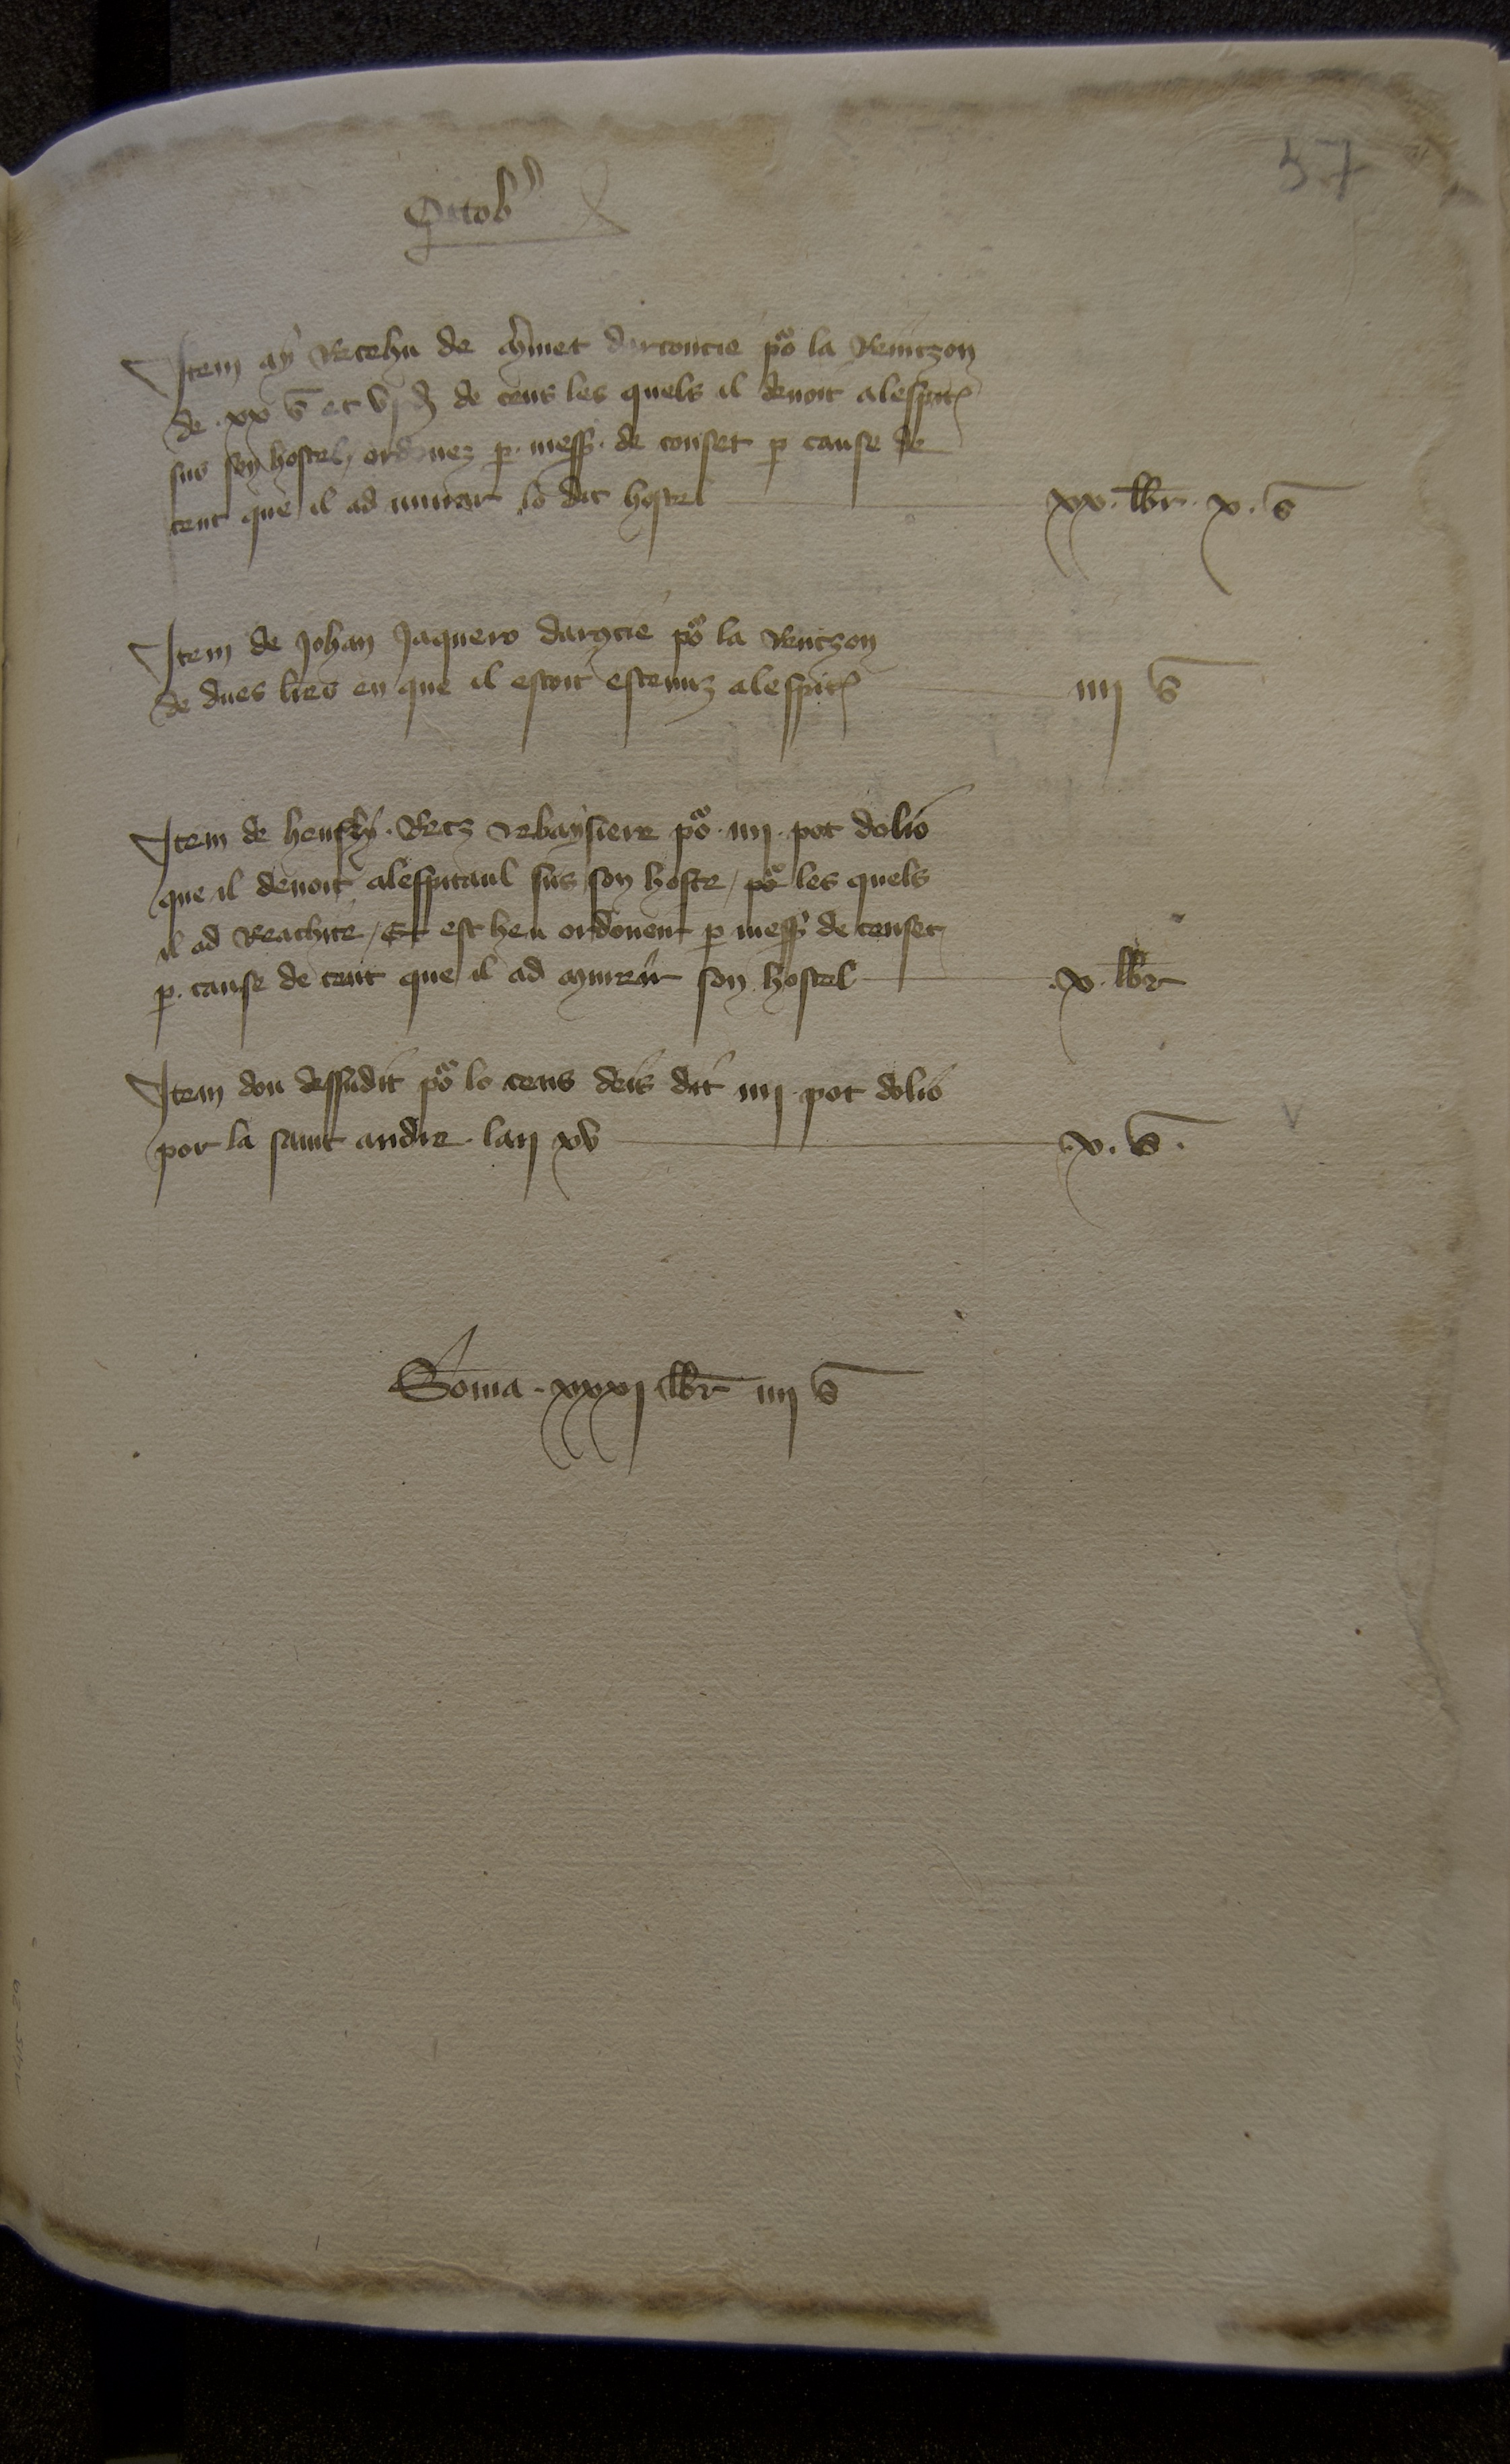 57
Octob
Item ay Recehu de aymet darconcie po la Reimczon
de xx s et vj d de cens les quels il devoit alespit
sus son hostel ordonez p mess de conset p cause de
cent que il ad murar lo dit hostel xx lbr x s
Item de Johan Jaquero dargcie po la Reinczon
de dues lres en que il estoit estenuz alespit iiij s
Item de hensly Retz po iiij pot dolio
que il devoit alespitaul sus son hoste / po les quels
il ad Reachite / Et est heu ordonent p mess de conset
p cause de cent que il ad son hostel x lbr
Item dou dessudit po lo cens deis dit iiij pot dolio
por la saint andre lan xv x s
Soma xxxj lbr iiij s